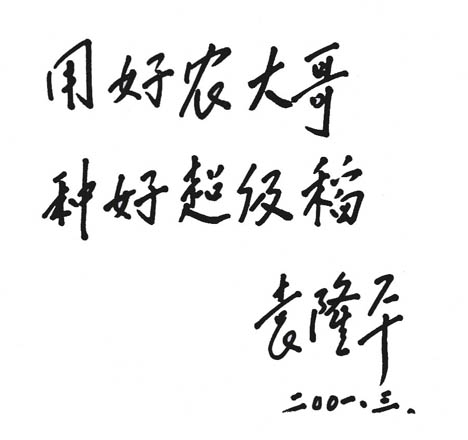 用好农大哥
种好超级稻
袁隆平
二00一.三.